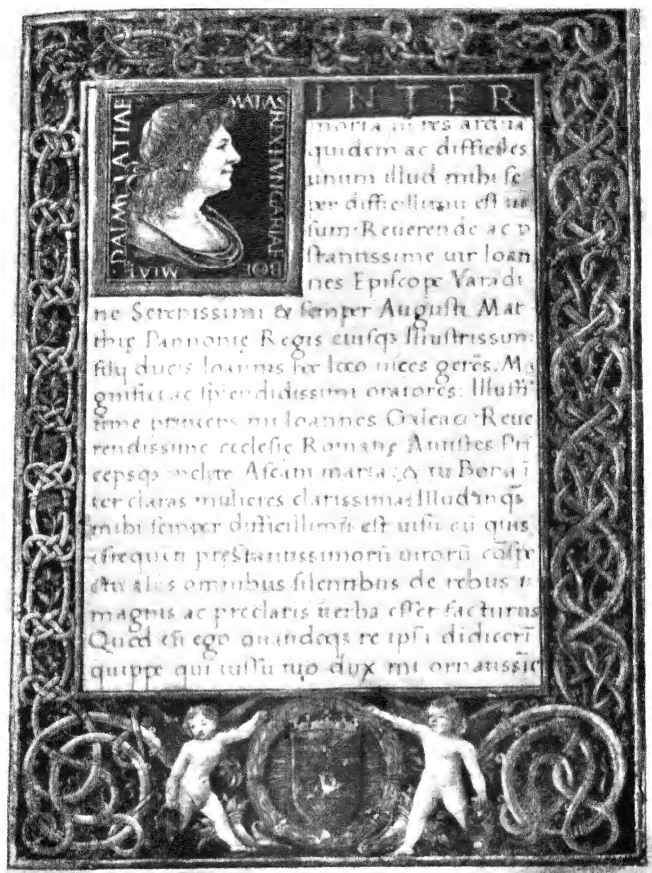 MATAS REX UNGARIAE BOE MIAE DALMATIAE
INTER
quidem ac difficiles
unum illud mihi se
per difficillimū est ui
sum. Reuerende ac p
stantissime uir Ioan
nes Episcope Varadi
ne Serenissimi & semper Augusti Mat
thię Pannonię Regis eiusq₃ Illustrissimi
filij ducis Ioannis hoc loco uices gerēs. Ma
gnifici ac splendidissimi oratores. Illustri
sime princeps mi Ioannes Galeaci Reue
rendissime ecclesię Romanę Antistes Pri
cepsq₃ inclyte Ascani maria: & tu Bona ī
ter claras mulieres clarissima: Illud inq̄
mihi semper difficillimū est uisū cū quis
ī frequenti pręstantissimorū uirorū cōspe
ctu aliis omnibus silentibus de rebus
magnis ac preclaris uerba esset facturus
Quod ego quandoq₃ re ipsa didicerī
quippe qui iussu tuo dux mi ornatissīe